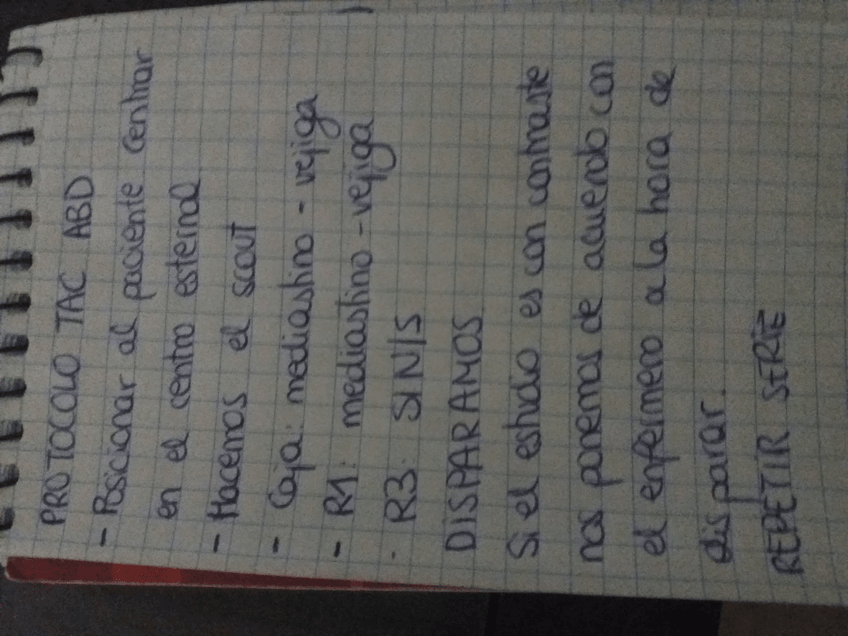 PROTOCOLO TAC ABD
- Posicionar al paciente centrar
en el centro esternal
- Hacemos el scout
- Caja: mediastino - vejiga
- R1: mediastino - vejiga
- R3: SIN/S
DISPARAMOS
Si el estudio es con contraste
nos ponemos de acuerdo con
el enfermero a la hora de
disparar.
REPETIR SERIE